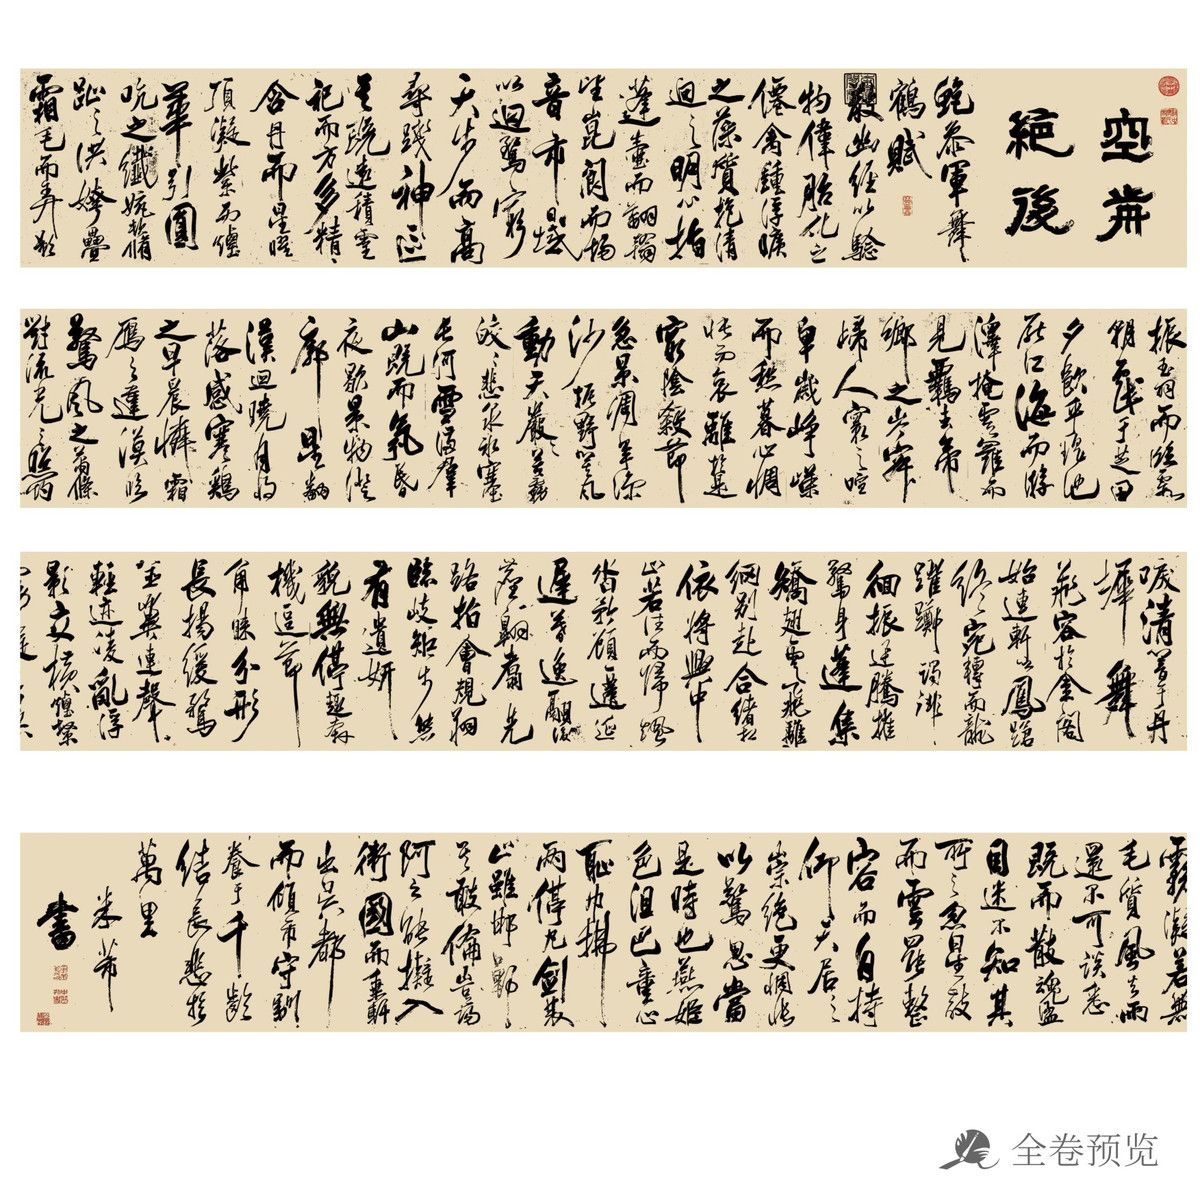 空前
絕後
鮑參軍舞
鶴賦
散幽經以驗
物偉胎化之
僊禽鍾浮曠
之藻質抱清
迥之明心指
蓬壺而翻翰
望崑閬而揚
音帀日域
以迴騖窮
天步而高
尋踐神區
其既遠積靈
祀而方多精
含丹而星曜
頂凝紫而煙
華引圓
吭之纖婉頓脩
趾之洪姱疊
霜毛而弄影
振玉羽而臨霞
朝戲于芝田
夕飲乎瑤池
厭江海而游
澤掩雲羅而
見羈去帝
鄉之岑寂
歸人寰之喧
卑歲崢嶸
而愁暮心惆
悵而哀離於是
窮陰殺節
急景凋年涼
沙振野箕風
動天嚴嚴苦霧
皎皎悲泉冰塞
長河雪滿羣
山既而氛昏
夜歇景物澄
廓星翻
漢迴曉月將
落感寒鷄
之早晨憐霜
雁之違漠臨
驚風之蕭條
對流光之照灼
唳清響于丹
墀舞
飛容於金閣
始連軒以鳳蹌
終宛轉而龍
躍躑躅徘
徊振迅騰摧
驚身蓬集
矯翅雪飛離
綱別赴合緒相
依將興中
止若往而歸颯
沓矜顧遷延
遲暮逸翮後
塵翱翥先
路指會規翔
臨岐矩步態
有遺妍
貌無停趣奔
機逗節
角睞分形
長揚緩騖
並翼連聲
輕迹凌亂浮
影交橫
霧凝若無
毛質風去雨
還不可談悉
既而散魂盪
目迷不知其
所之忽星離
而雲罷整
容而自持
仰天居之
崇絕更惆悵
以驚思當
是時也燕姬
色沮巴童心
恥巾拂
兩停丸劍雙
止雖邯鄲
其敢倫豈陽
阿之能擬入
衛國而乘軒
出吳都
而傾市守馴
養于千齡
結長悲於
萬里
米芾
書
全卷预览